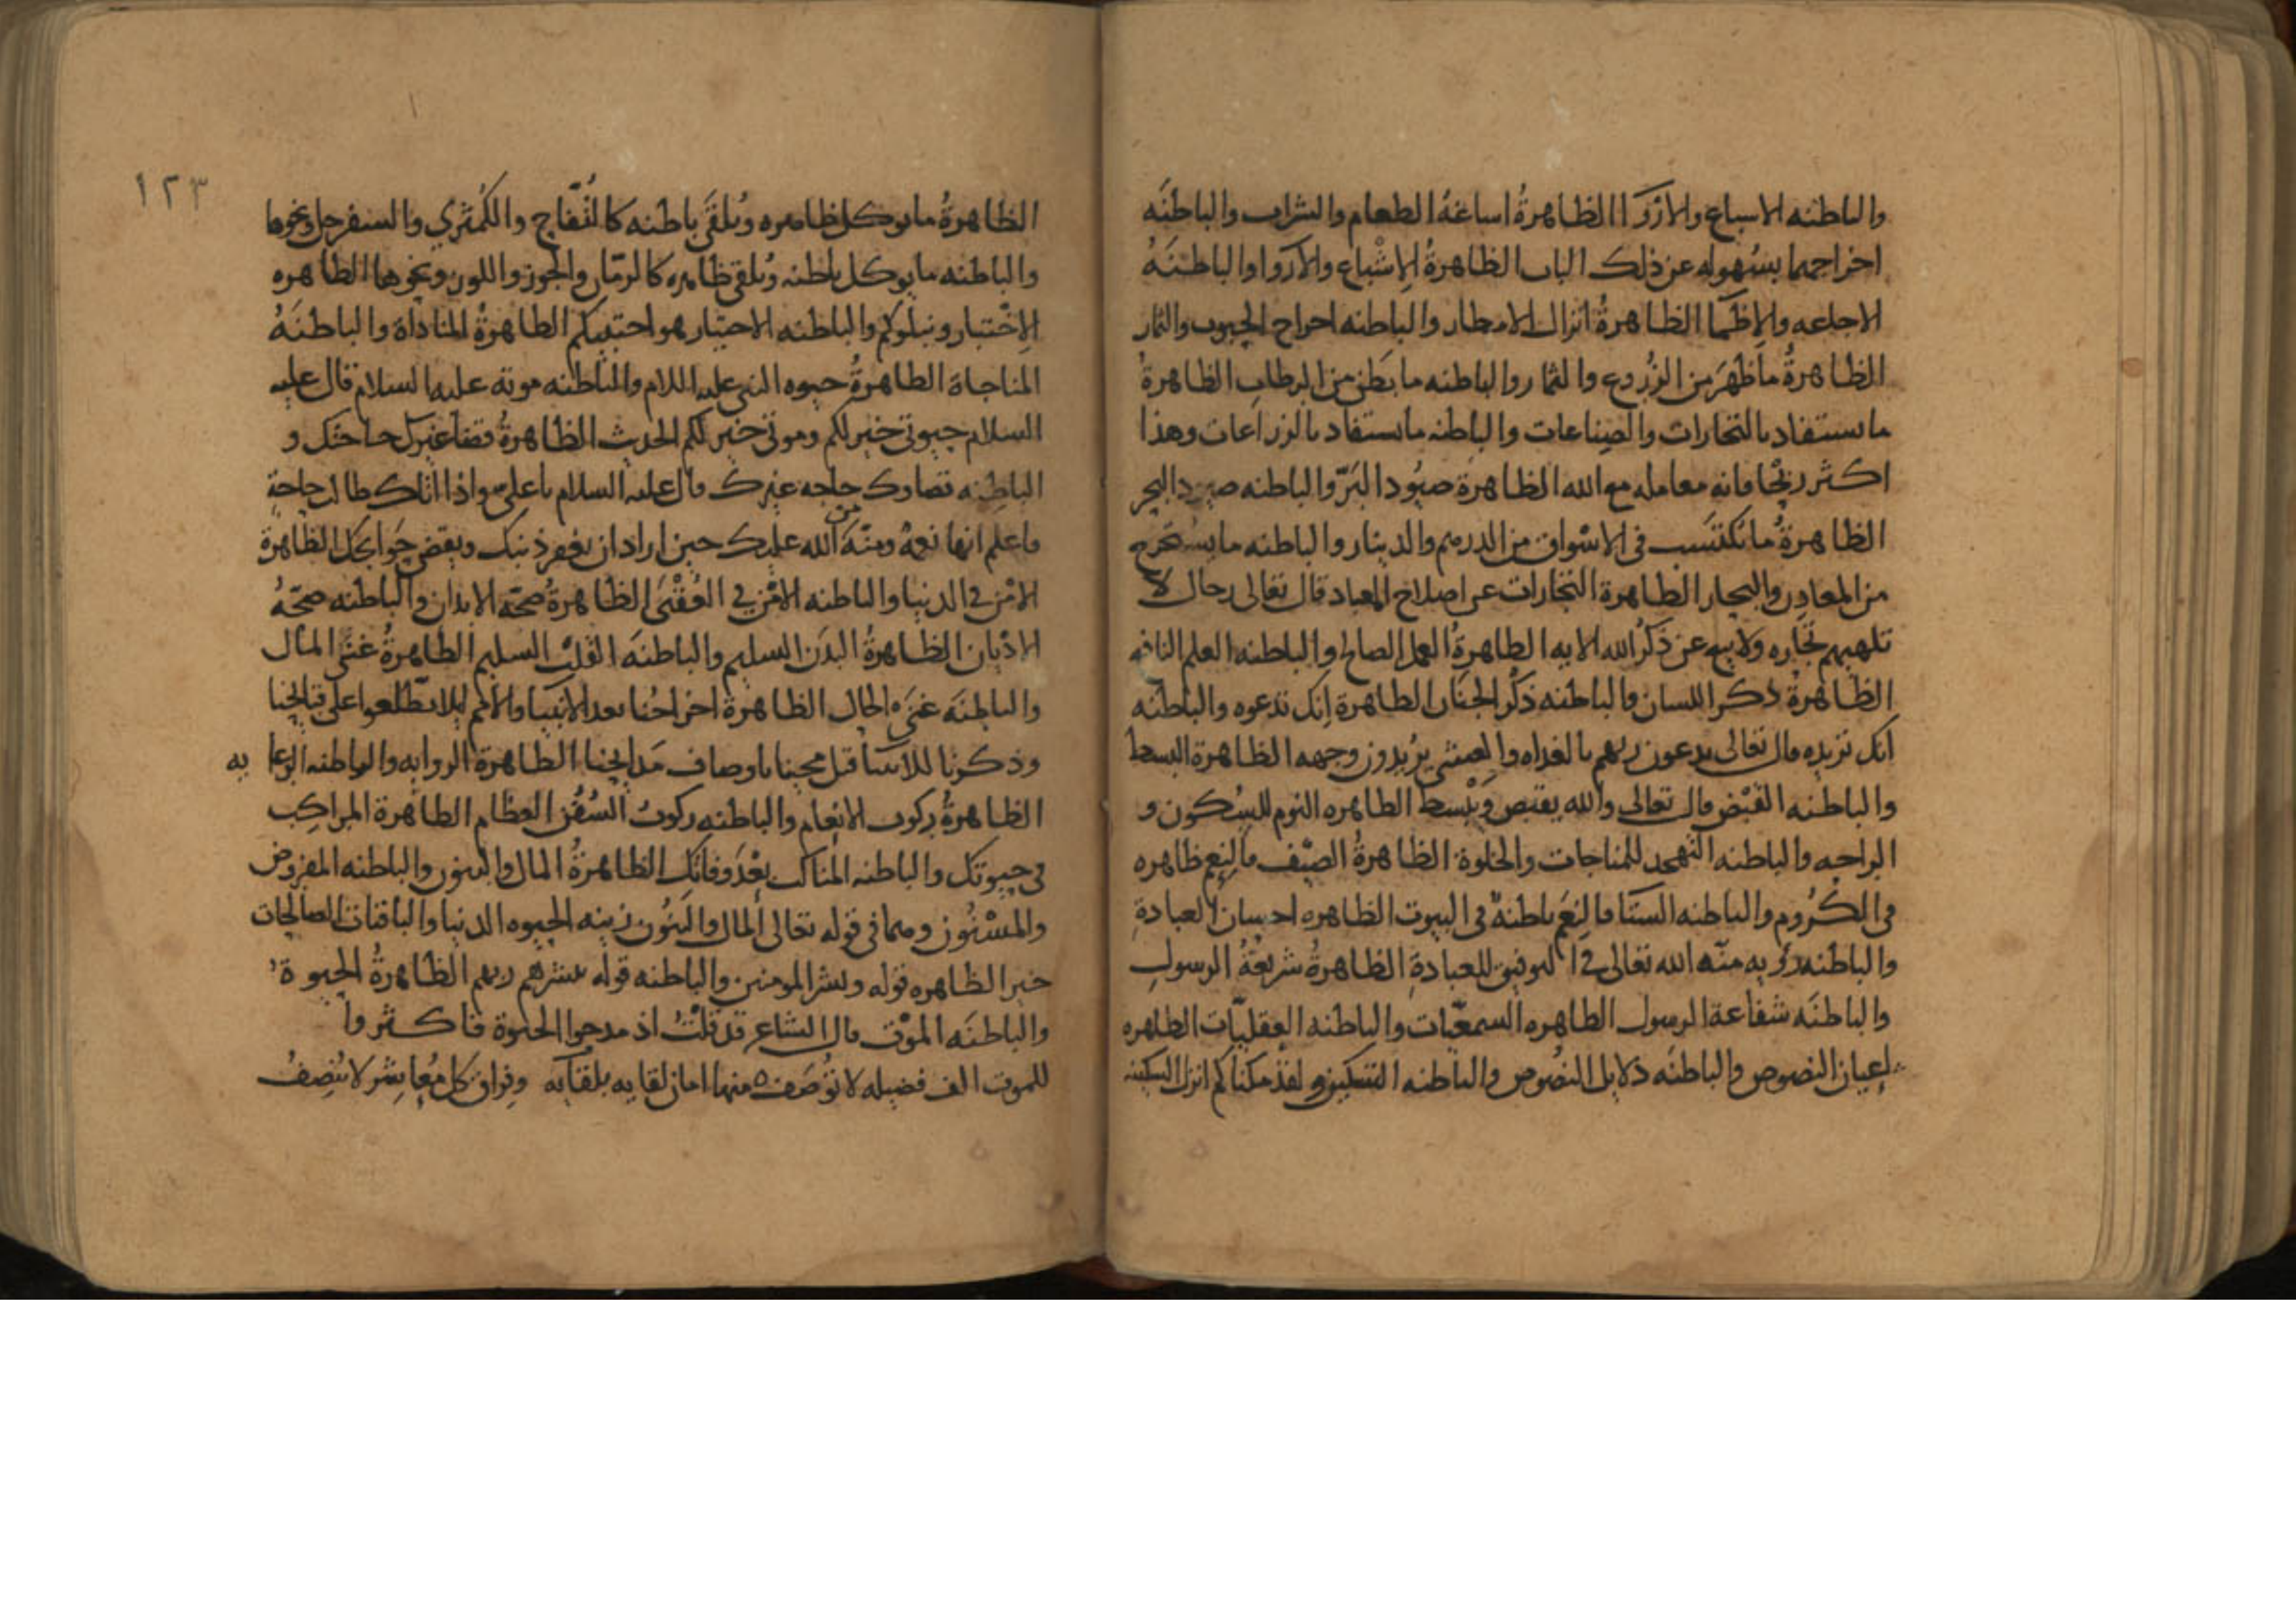 والباطنه الاسباع والازرا الظاهرةُ اساغةُ الطعام والشراب والباطنَه
اخراجهما بسُهوله عن ذلك الباب الظاهرةُ الاِشْباع والاروا والباطنَهُ
الاجاعه والاِظمَا الظاهرةُ انزال الامطار والباطنه اخراج الحبوب والثمار
الظاهرةُ ما ظهَرَ من الزُروع والثمار والباطنه ما بَطَن من الرطاب الظاهرةُ
ما يستفاد بالتجارات والصِناعات والباطنه ما يستفاد بالزراعات وهذا
اكثر ربْحًا فانه معامله مع الله الظاهرة صيُود البَرّ والباطنه صيود البحر
الظاهرةُ ما تكتسَب فى الاسْواق من الدرهم والدينار والباطنه ما يستخرج
من المعادِن والبحار الظاهرة التجارات عن اصلاح المعاد قال تعالى رجال لا
تلهيهم تجاره ولا بيع عن ذكر الله الايه الظاهرةُ العمل الصالح والباطنه العلم النافع
الظاهرةُ ذكر اللسان والباطنه ذكر الجنَان الظاهرة اِنك تدعوه والباطنَه
انك تريده قال تعالى يدعون ربهم بالغداه والعشي يرُيدون وجهه الظاهرة البسط
والباطنه القبْض قال تعالى والله يقبض وَيبْسط الظاهره النوم للسُكون و
الراحه والباطنه التهجد للمناجات والخلوة الظاهرةُ الصيْف فالنِعم ظاهره
فى الكُروم والباطنه الشتا فالنِعَم باطنهٌ فى البيوت الظاهره احسان العبادةِ
والباطنه رؤيه منّه الله تعالى في التوفيق للعبادةِ الظاهرةُ شريعَةُ الرسولِ
والباطنَه شفاعة الرسول الظاهره السمعيّات والباطنه العقليّات الظاهره
اعيان النصوص والباطنَه دلايل النصُوص والباطنه التمكين ولقد مكناكم انزل السكينه
١٢٣
الظاهرةُ ما يوكل ظاهره ويُلقَى باطنه كالتُفّاح والكُمثرى والسفرجل ونحوها
والباطنه ما يوكل باطنه ويُلقى ظاهره كالرمّان والجوز واللوز ونحوها الظاهره
الاِخْتبار ونبلوكم والباطنه الاجتبار هو اجتبيكم الظاهرةُ المناداة والباطنَهُ
المناجاة الظاهرةُ حيوه النبى عليه السلام والباطنه موته عليه السلام قال عليه
السلام حيوتى خير لكم وموتى خير لكم الحديث الظاهرةُ قضا غيرك حاجتك و
الباطِنه قضاوك حاجه غيرك قال عليه السلام يا علىّ واذا اتاك طالب حاجةٍ
فاعلم انها نعمهٌ ومنّه من الله عليك حين اراد ان يغفر ذنبك ويقضى حَوايجك الظاهرة
الامْن فى الدنيا والباطنه الامْن في العُقْبَى الظاهرةُ صحّه الابدان والباطنه صحّهُ
الادْيان الظاهرةُ البدَن السليم والباطنَه القلْب السليم الظاهرةُ غنَى المال
والباطِنَه غنَى الحال الظاهرة اخراجُنا بعد الانبيا والامم ليلا يَطّلعوا على قبايحنا
وذكرنا للانبيا قبل مجينا باوصاف مَدايحنا الظاهرة الروايه والباطنه الرعايه
الظاهرةُ ركوب الانعام والباطنه ركوبُ السُفُن العظام الظاهرة المراكِب
فى حيوتك والباطنه المناكب بعْدَ وفاتك الظاهرةُ المال والبنون والباطنه المفروض
والمسْنُون وهما فى قوله تعالى المال والبَنُون زينه الحيوه الدنيا والباقيات الصالحات
خير الظاهره قوله وبشر المومنين والباطنه قوله يبشرهم ربهم الظاهرةُ الحيوةُ
والباطنَه الموْت قال الشاعر قد قلْتُ اذ مدحوا الحيوة فاكثروا
للموت الف فضيله لا توُصَف ه منها امان لقايه بلقآيه وفراق كل مُعاشِر لا يُنْصِفُ